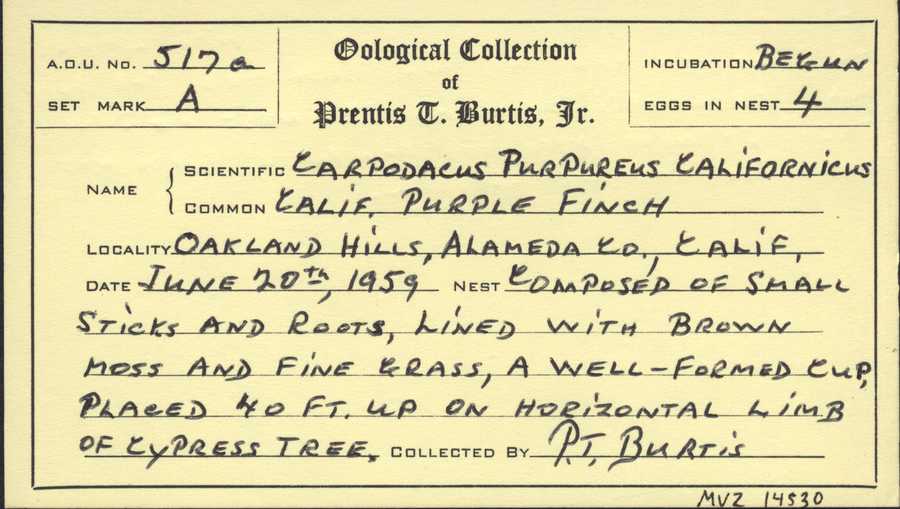 A.O.U. No. 517a
SET MARK A
Oological Collection
of
Prentis T. Burtis, Jr.
INCUBATION BEGUN
EGGS IN NEST 4
NAME { SCIENTIFIC CARPODACUS PURPUREUS CALIFORNICUS
COMMON CALIF. PURPLE FINCH
LOCALITY OAKLAND HILLS, ALAMEDA CO., CALIF.
DATE JUNE 20th, 1959 NEST COMPOSED OF SMALL
STICKS AND ROOTS, LINED WITH BROWN
MOSS AND FINE GRASS, A WELL-FORMED CUP,
PLACED 40 FT. UP ON HORIZONTAL LIMB
OF CYPRESS TREE. COLLECTED BY P.T. BURTIS
MVZ 14530